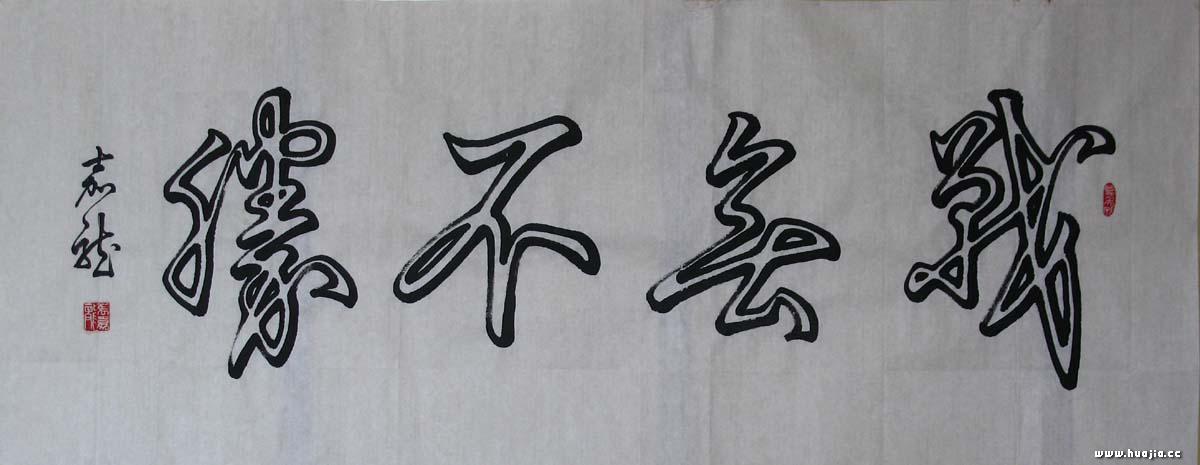 戰无不勝
嘉龙
www.huajia.cc